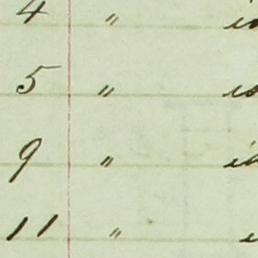 4 "
5 "
9 "
11 "